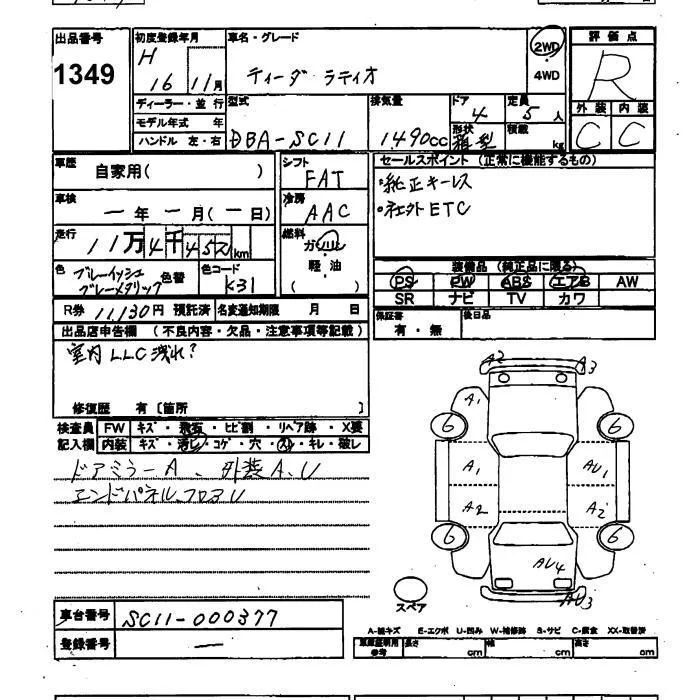 出品番号 初度登録年月 車名・グレード 2WD 評価点
1349 H 16 11月 ティーダ ラティオ 4WD R
ディーラー・並行 型式 排気量 ドア 4 定員 5人 外装 内装
モデル年式 年 DBA-SC11 1490cc 形状 箱型 積載 kg C C
ハンドル 左・右
車歴 自家用( ) シフト FAT セールスポイント (正常に機能するもの)
・純正キーレス
車検 ー年ー月(ー日) 冷房 AAC ・社外ETC
走行 11万4千452km 燃料 ガソリン 軽・油 ( )
装備品 (純正品に限る)
色 ブルーイッシュグレーメタリック 色替 色コード K31 PS PW ABS エアB AW
SR ナビ TV カワ
R券 11,130円 預託済 名変通知期限 月 日 保証書 有・無 後日品
出品店申告欄 (不良内容・欠品・注意事項等記載)
室内LLC洩れ?
修復歴 有〔箇所
検査員 FW キズ・飛石・ヒビ割・リペア跡・X要
記入欄 内装 キズ・汚レ・コゲ・穴・スレ・キレ・破レ
ドアミラーA、外装A、U
エンドパネル フロアU
A2 A3
A1
6 6
A1 AU1
A2 A2
6 6
AU4
AU3
スペア
車台番号 SC11-000377
登録番号 ー
A-線キズ E-エクボ U-凹み W-補修跡 S-サビ C-腐食 XX-取替済
車庫証明用参考 長さ cm 幅 cm 高さ cm